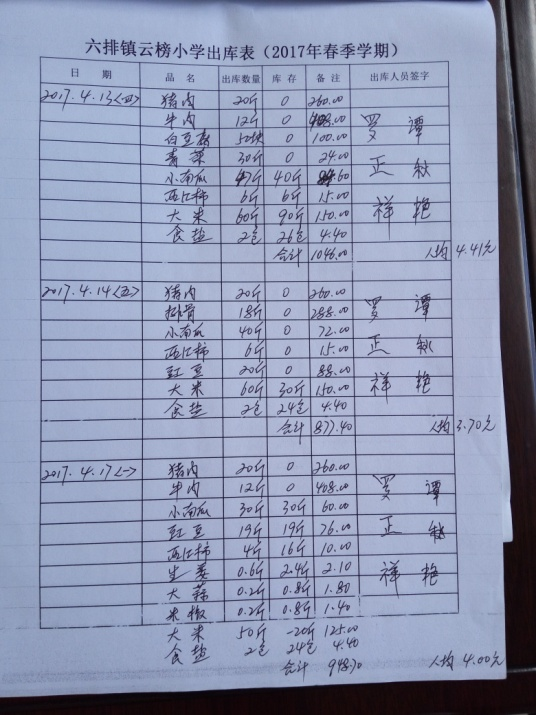 六排镇云榜小学出库表（2017年春季学期）
日 期 品 名 出库数量 库 存 备 注 出库人员签字
2017.4.13<四> 猪肉 20斤 0 260.00
牛肉 12斤 0 408.00 罗 谭
白豆腐 50块 0 100.00
青菜 30斤 0 24.00 正 秋
小南瓜 47斤 40斤
西红柿 6斤 6斤 15.00
大米 60斤 90斤 150.00 祥 艳
食盐 2包 26包 4.40
合计 1046.00 人均 4.41元
2017.4.14<五> 猪肉 20斤 0 260.00
排骨 18斤 0 288.00 罗 谭
小南瓜 40斤 0 72.00
西红柿 6斤 0 15.00 正 秋
豇豆 20斤 0 88.00
大米 60斤 30斤 150.00 祥 艳
食盐 2包 24包 4.40
合计 877.40 人均 3.70元
2017.4.17<一> 猪肉 20斤 0 260.00
牛肉 12斤 0 408.00 罗 谭
小南瓜 30斤 30斤 60.00
豇豆 19斤 19斤 76.00 正 秋
西红柿 4斤 16斤 10.00
生姜 0.6斤 2.4斤 2.10 祥 艳
大蒜 0.2斤 0.8斤 1.80
米椒 0.2斤 0.8斤 1.40
大米 50斤 -20斤 125.00
食盐 2包 24包 4.40
合计 948.70 人均 4.00元